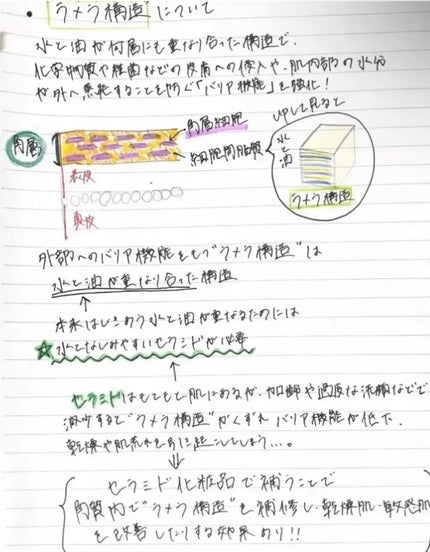 • ラメラ構造 について
水と油が何層にも重なり合った構造で、
化学物質や雑菌などの皮膚への侵入や、肌内部の水分
が外へ蒸発することを防ぐ「バリア機能」を強化!
UPして見ると
角層
角層細胞
細胞間脂質
水と油
ラメラ構造
表皮
真皮
外部へのバリア機能をもつ“ラメラ構造”は
水と油が重なり合った構造
↑
本来はじきあう水と油が重なるためには
☆水となじみやすいセラミドが必要
↑
セラミドはもともと肌にあるが、加齢や過度な洗顔などで
減少すると“ラメラ構造”がくずれ バリア機能が低下、
乾燥や肌荒れを引き起こしてしまう…。
⇓
セラミド化粧品で補うことで
角質内で“ラメラ構造”を補修し、乾燥肌・敏感肌
を改善したりする効果あり!!